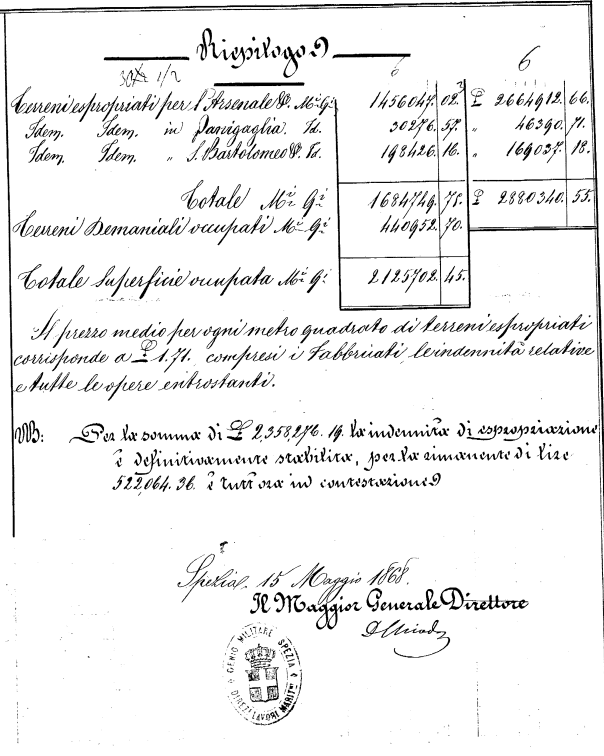 Riepilogo
1/2
6
Terreni espropriati per l'Arsenale &. Mi Qi 1456047. 02. £ 2664912. 66.
Idem. Idem. in Panigaglia. Id. 30276. 57. " 46390. 71.
Idem. Idem. " S. Bartolomeo &. Id. 198426. 16. " 169037. 18.
Totale Mi Qi 1684749. 75. £ 2880340. 55.
Terreni Demaniali occupati Mi Qi 440952. 70.
Totale Superficie occupata Mi Qi 2125702. 45.
Il prezzo medio per ogni metro quadrato di terreni espropriati
corrisponde a £ 1.71. compresi i Fabbricati, le indennità relative
e tutte le opere entrostanti.
NB: Per la somma di £ 2,358,276. 19. la indennità di espropriazione
è definitivamente stabilita, per la rimanente di lire
522,064. 36. è tutt'ora in contestazione
Spezia 15 Maggio 1868.
Il Maggior Generale Direttore
GENIO MILITARE SPEZIA
DIREZe LAVORI MARITMI